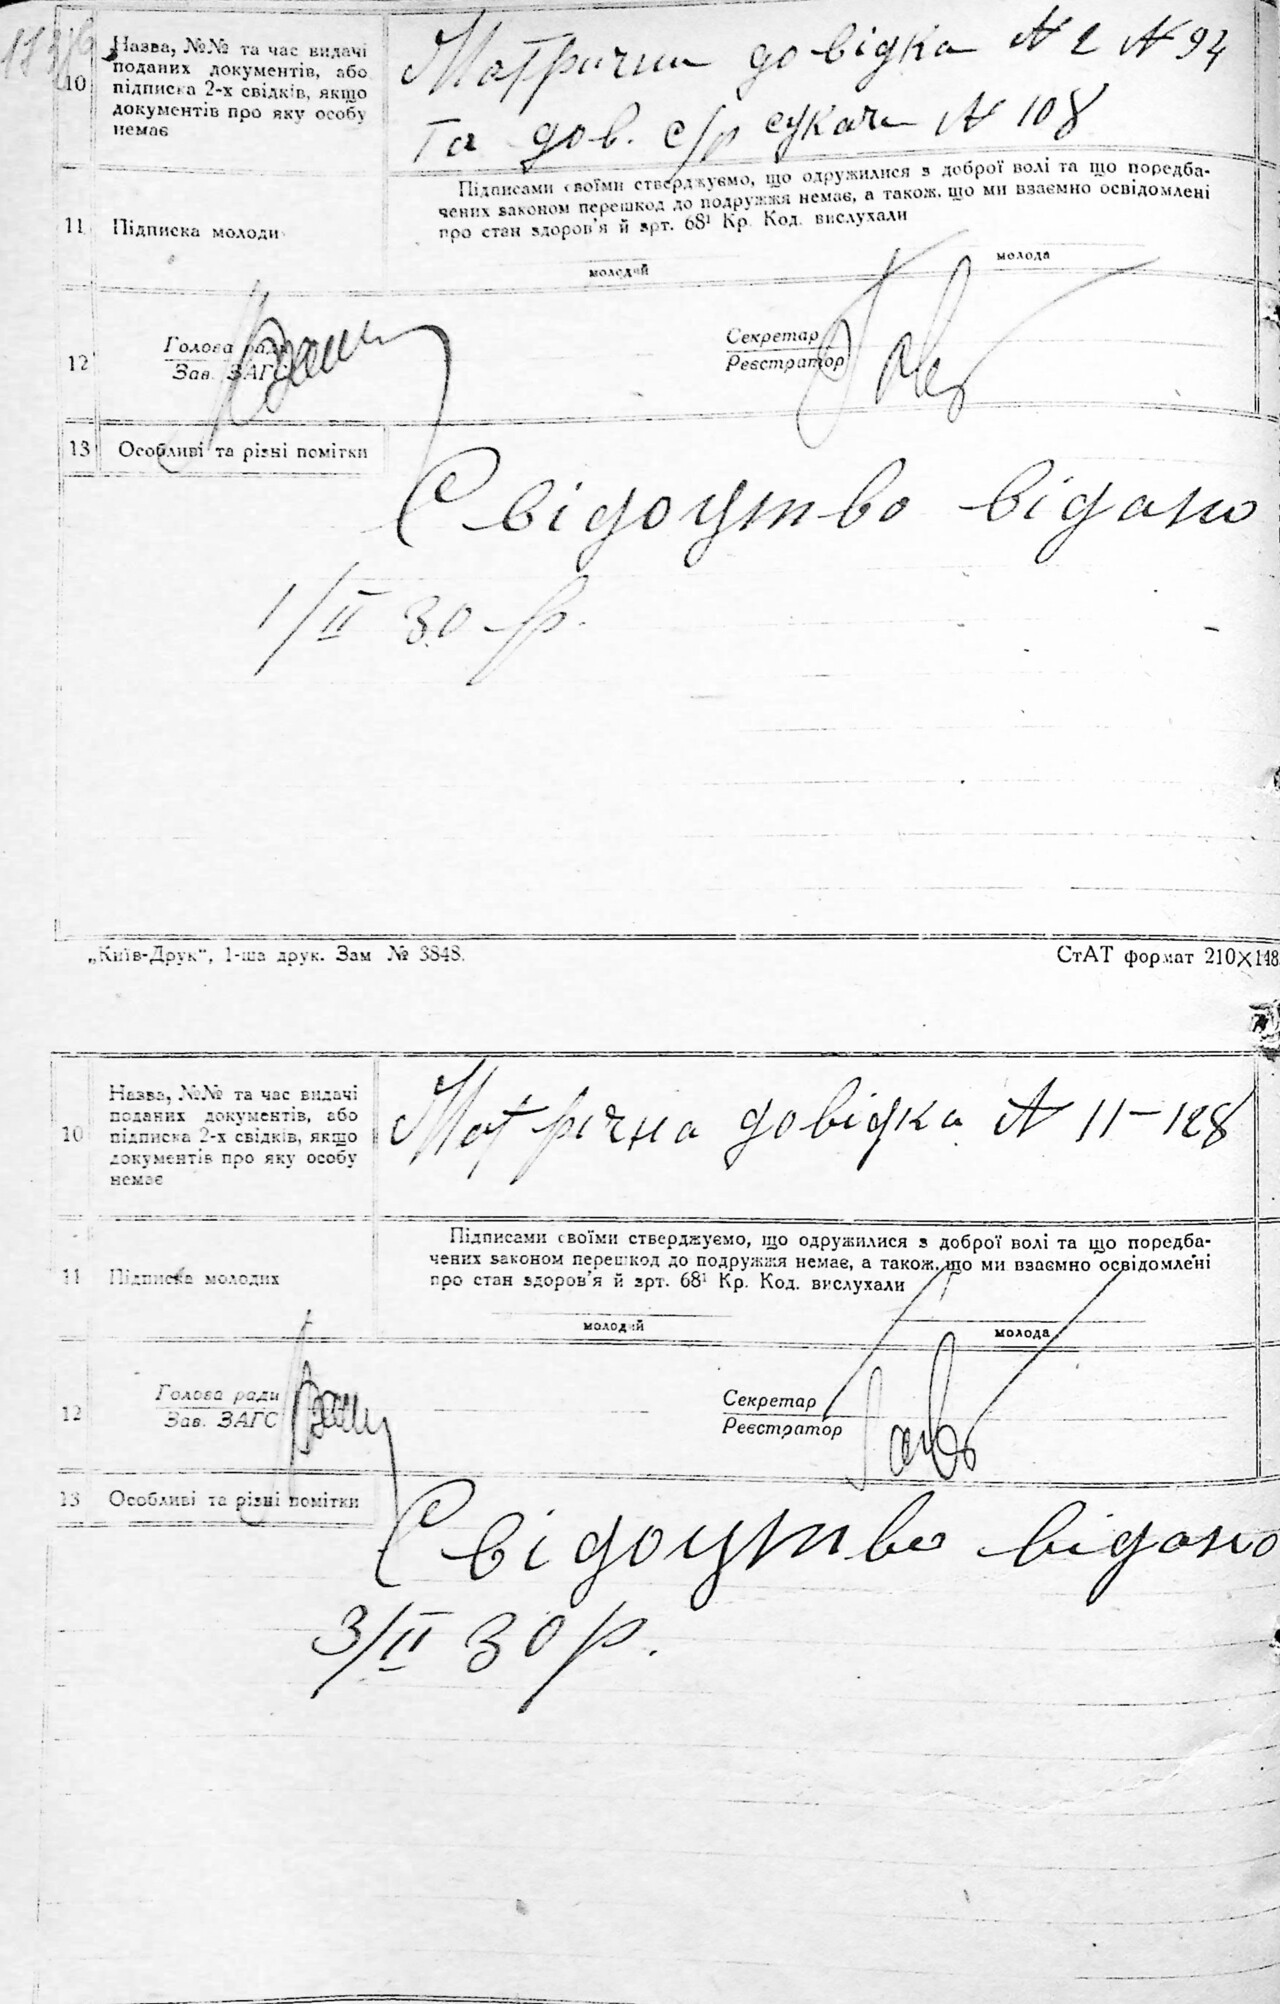 10 Назва, №№ та час видачі
поданих документів, або
підписка 2-х свідків, якщо
документів про яку особу
немає
Матрична довідка № 2 № 94
та дов. с/р № 108
11 Підписка молоди
Підписами своїми стверджуємо, що одружилися з доброї волі та що поредба-
чених законом перешкод до подружжя немає, а також, що ми взаємно освідомлені
про стан здоров'я й арт. 68¹ Кр. Код. вислухали
молодий молода
12 Голова ради
Зав. ЗАГС
Секретар
Реєстратор
13 Особливі та різні помітки
Свідоцтво відано
1/II 30 р.
„Київ-Друк", 1-ша друк. Зам № 3848.
СтАТ формат 210×148
10 Назва, №№ та час видачі
поданих документів, або
підписка 2-х свідків, якщо
документів про яку особу
немає
Матрічна довідка № 11-128
11 Підписка молодих
Підписами своїми стверджуємо, що одружилися з доброї волі та що поредба-
чених законом перешкод до подружжя немає, а також, що ми взаємно освідомлені
про стан здоров'я й арт. 68¹ Кр. Код. вислухали
молодий молода
12 Голова ради
Зав. ЗАГС
Секретар
Реєстратор
13 Особливі та різні помітки
Свідоцтво відано
3/II 30 р.